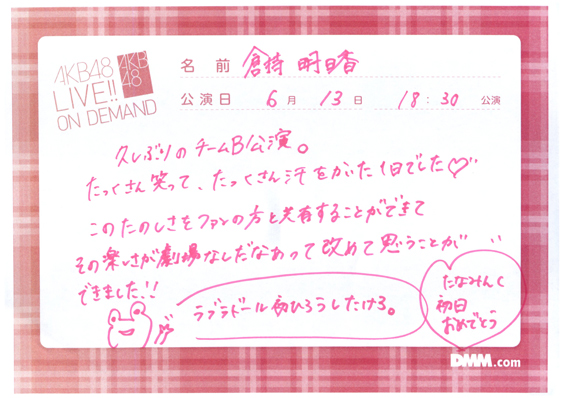 AKB48
LIVE!!
ON DEMAND
AKB
48
名 前 倉持 明日香
公演日 6月 13日 18:30 公演
久しぶりのチームB公演。
たっくさん笑って、たっくさん汗をかいた1日でした♡
このたのしさをファンの方と共有することができて
その楽しさが劇場なしだなあって改めて思うことが
できました!!
ラブラドール初ひろうしたけろ。
たなみんく
初日
おめでとう
DMM.com